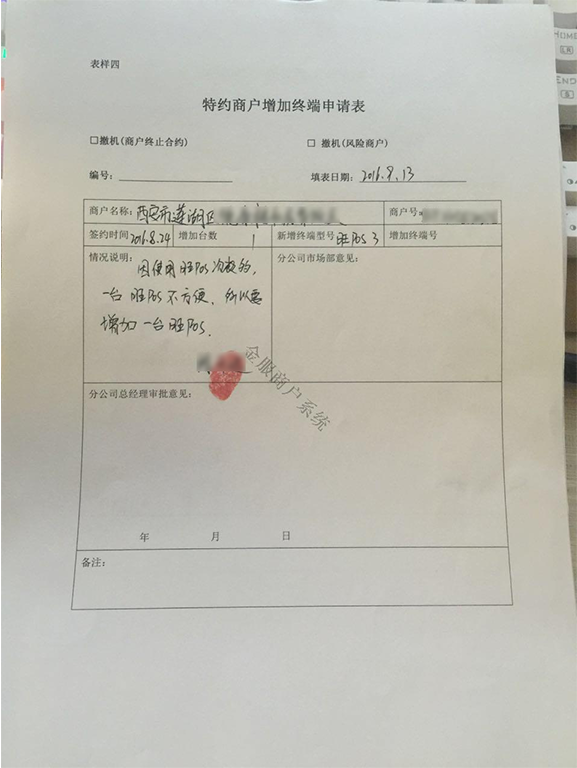 表样四
特约商户增加终端申请表
□撤机(商户终止合约) □ 撤机(风险商户)
编号: 填表日期: 2016.9.13
商户名称: 西安市莲湖区 商户号:
签约时间 2016.8.24 增加台数 1 新增终端型号 旺POS 3 增加终端号
情况说明: 分公司市场部意见:
因使用旺POS次数多,
一台旺POS不方便,所以要
增加一台旺POS.
金服商户系统
分公司总经理审批意见:
年 月 日
备注:
HOME
END